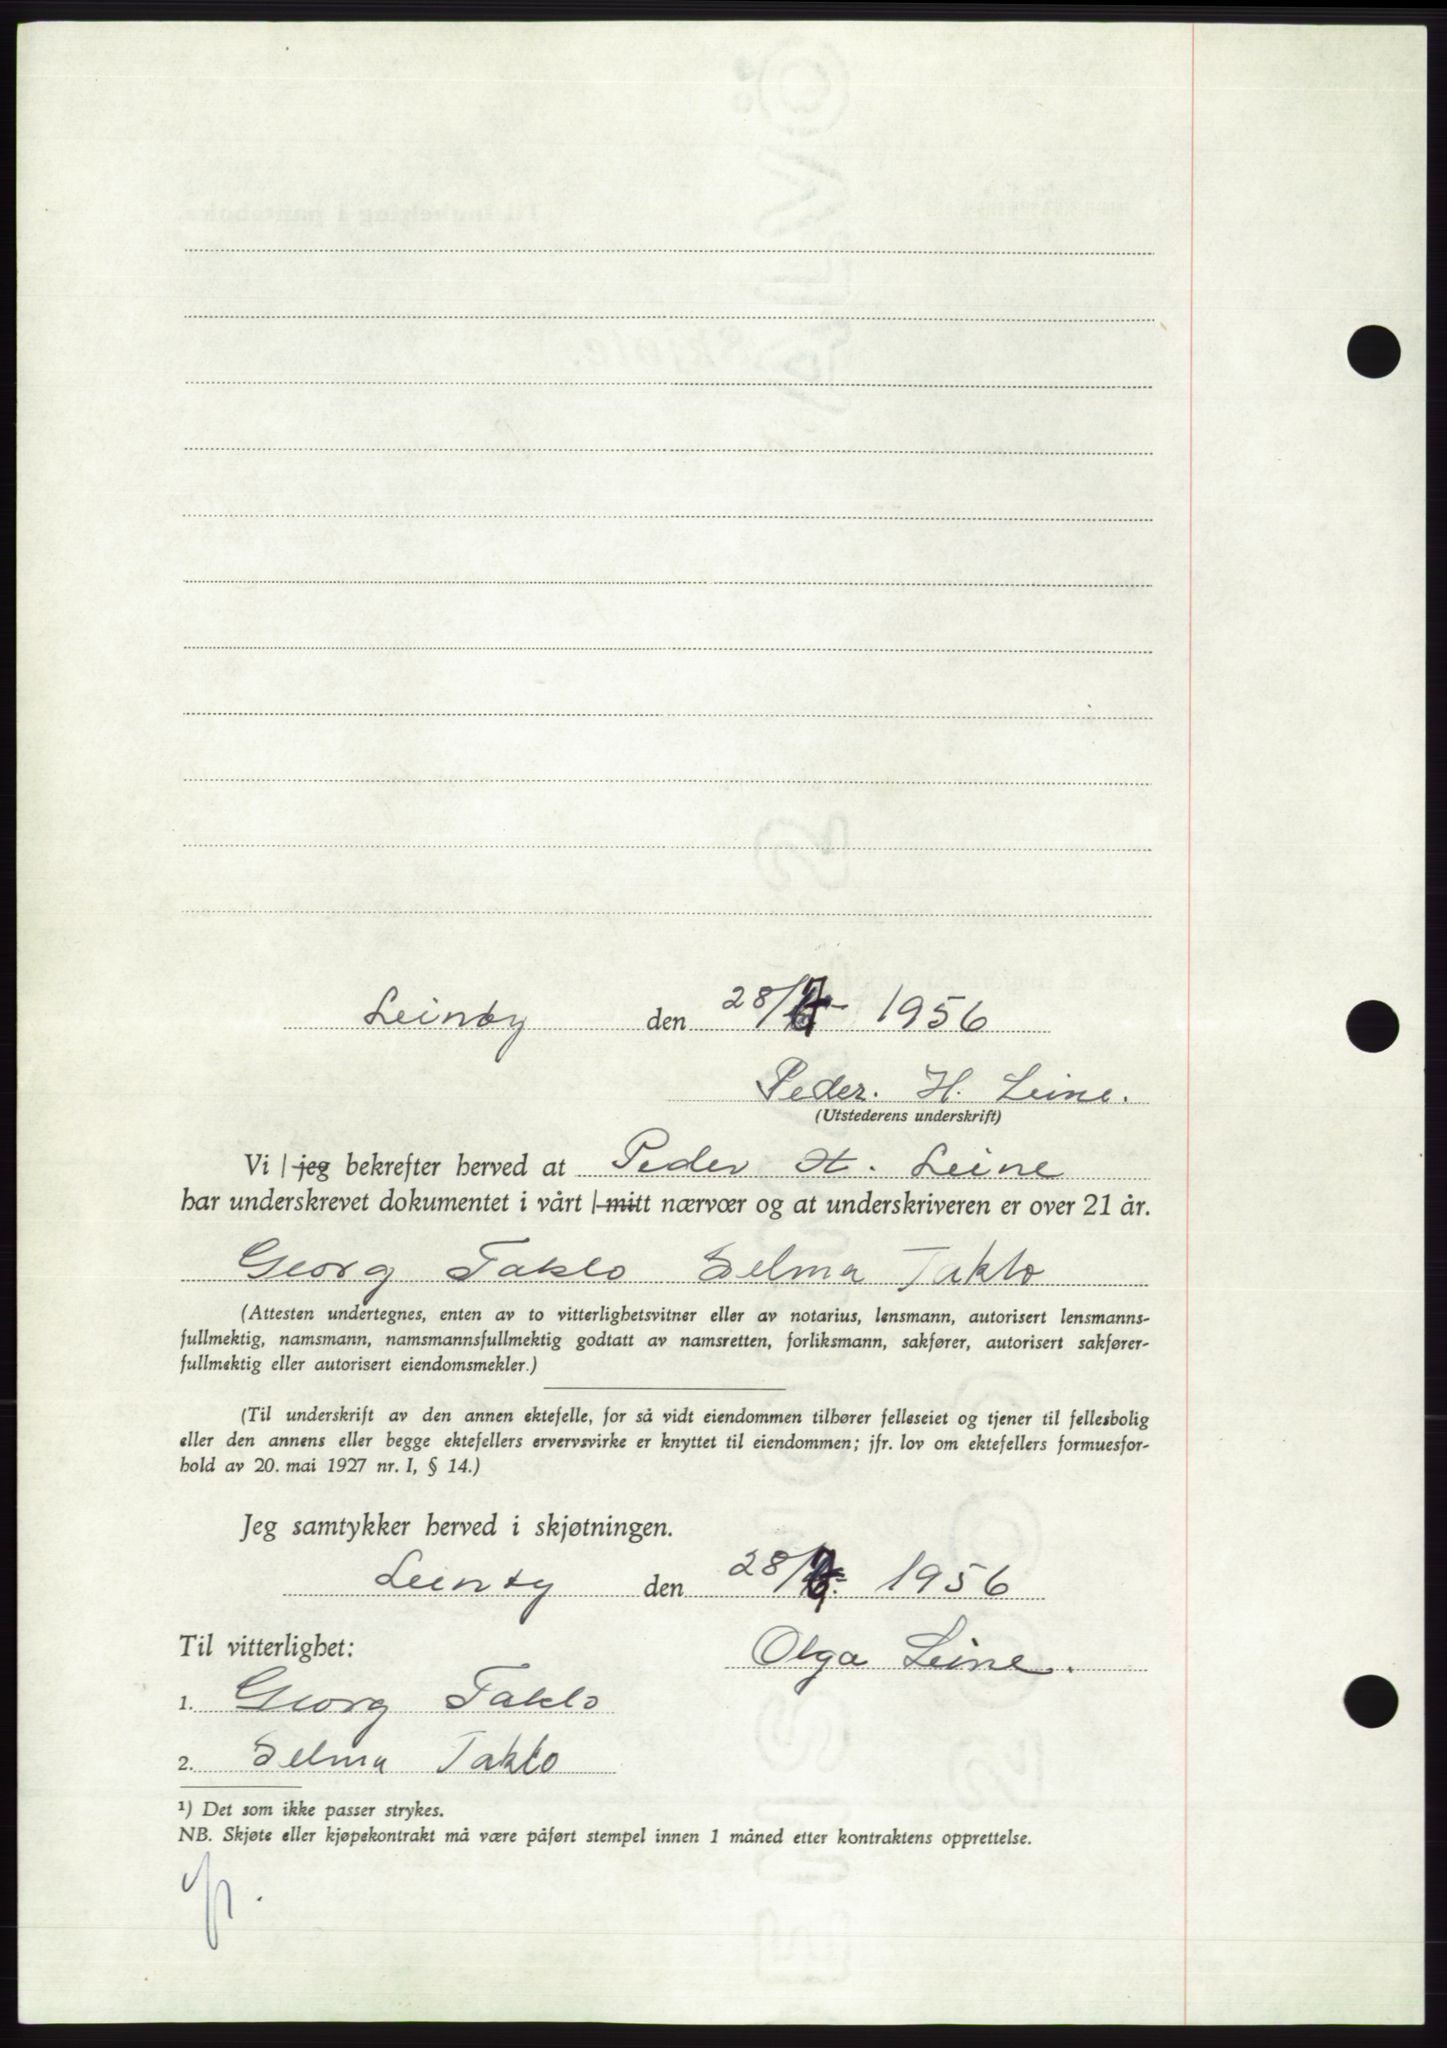 Leinøy den 28/7- 1956
Peder. H. Leine.
(Utstederens underskrift)
Vi / jeg bekrefter herved at Peder H. Leine
har underskrevet dokumentet i vårt / mitt nærvær og at underskriveren er over 21 år.
Georg Taklo Selma Taklo
(Attesten undertegnes, enten av to vitterlighetsvitner eller av notarius, lensmann, autorisert lensmanns-
fullmektig, namsmann, namsmannsfullmektig godtatt av namsretten, forliksmann, sakfører, autorisert sakfører-
fullmektig eller autorisert eiendomsmekler.)
(Til underskrift av den annen ektefelle, for så vidt eiendommen tilhører felleseiet og tjener til fellesbolig
eller den annens eller begge ektefellers ervervsvirke er knyttet til eiendommen; jfr. lov om ektefellers formuesfor-
hold av 20. mai 1927 nr. 1, § 14.)
Jeg samtykker herved i skjøtningen.
Leinøy den 28/7- 1956
Til vitterlighet:
Olga Leine.
1. Georg Taklo
2. Selma Taklo
¹) Det som ikke passer strykes.
NB. Skjøte eller kjøpekontrakt må være påført stempel innen 1 måned etter kontraktens opprettelse.